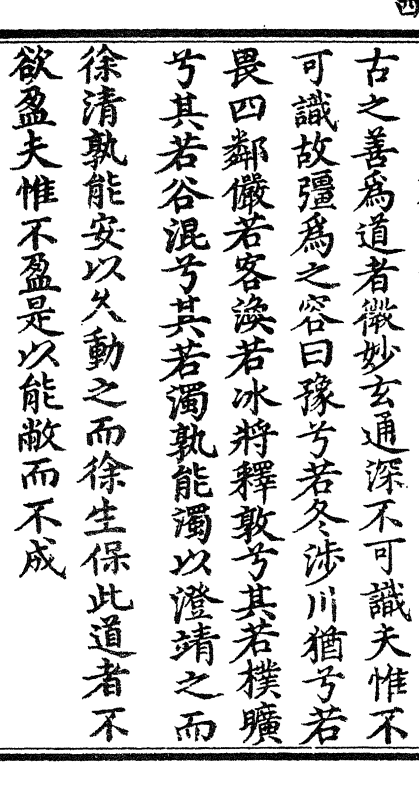 四
古之善爲道者微妙玄通深不可識夫惟不
可識故彊爲之容曰豫兮若冬涉川猶兮若
畏四鄰儼若客渙若冰將釋敦兮其若樸曠
兮其若谷混兮其若濁孰能濁以澄靖之而
徐清孰能安以久動之而徐生保此道者不
欲盈夫惟不盈是以能敝而不成